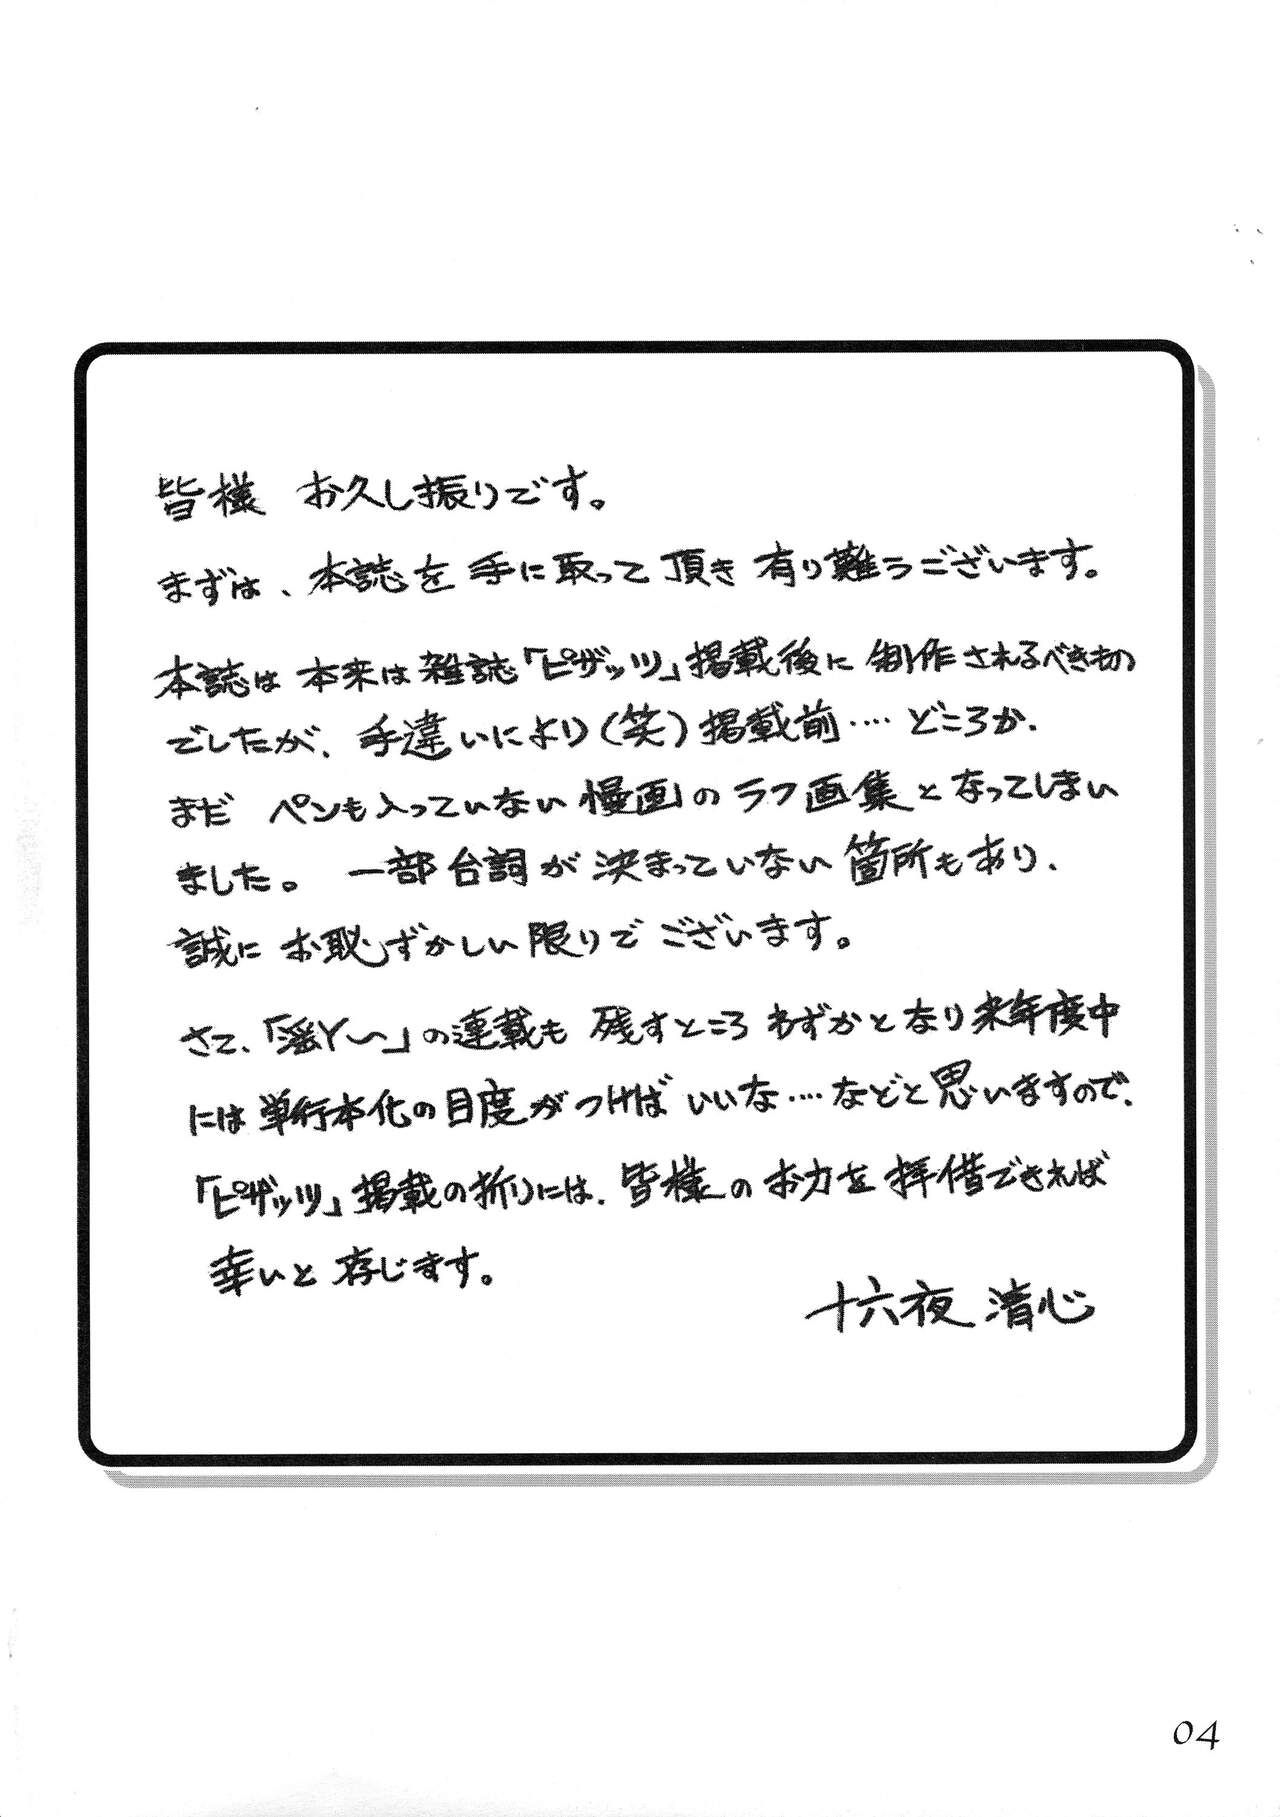 皆様 お久し振りです。
まずは、本誌を手に取って頂き有り難うございます。
本誌は本来は雑誌「ピザッツ」掲載後に制作されるべきもの
でしたが、手違いにより(笑)掲載前‥‥どころか、
まだ ペンも入っていない漫画のラフ画集となってしまい
ました。 一部台詞が決まっていない箇所もあり、
誠にお恥ずかしい限りでございます。
さて、「淫Y〜」の連載も 残すところわずかとなり来年度中
には単行本化の目度がつけばいいな‥‥などと思いますので、
「ピザッツ」掲載の折りには、皆様のお力を拝借できれば
幸いと存じます。
十六夜 清心
04